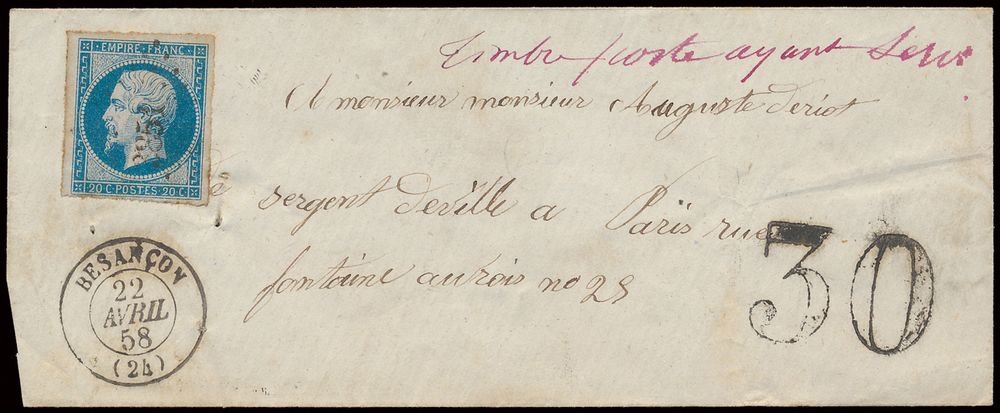 EMPIRE FRANC
20 C POSTES 20 C
Timbre poste ayant Servi
A monsieur monsieur Auguste deriot
sergent deville a Paris rue
fontaine au rois no 25
BESANÇON
22
AVRIL
58
(24)
30